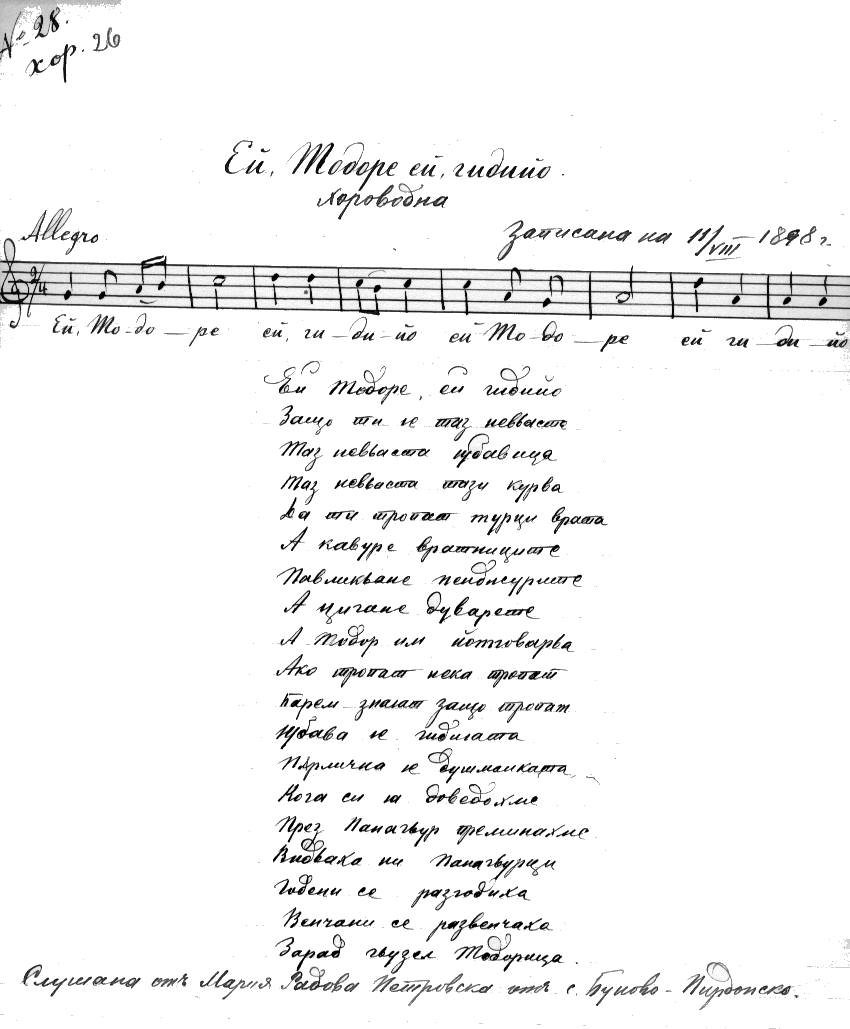 № 28.
хор. 26
Ей, Тодоре ей, гидийо.
хороводна
Allegro
Записана на 11/VIII 1898 г.
9/4
Ей, То-до-ре ей, ги-ди-йо ей То-до-ре ей ги-ди-йо
Ей Тодоре, ей гидийо
Защо ти је таз невяста
Таз невяста юбавица
Таз невяста тази курва
Да ти тропат турци врата
А кавуре вратниците
Павликяне пенджурите
А цигане дуварете
А Тодор им йотговарва
Ако тропат нека тропат
Барем знаят защо тропат
Юбава је гидията
Прлична је душманката
Кога си ја доведохме
През Панагюр преминахме
Видваха ни Панагюрци
Годени се разгодиха
Венчани се развенчаха
Зарад гюзел Тодорица.
Слушана отъ Мария Радова Петровска отъ с. Буново - Пирдопско.